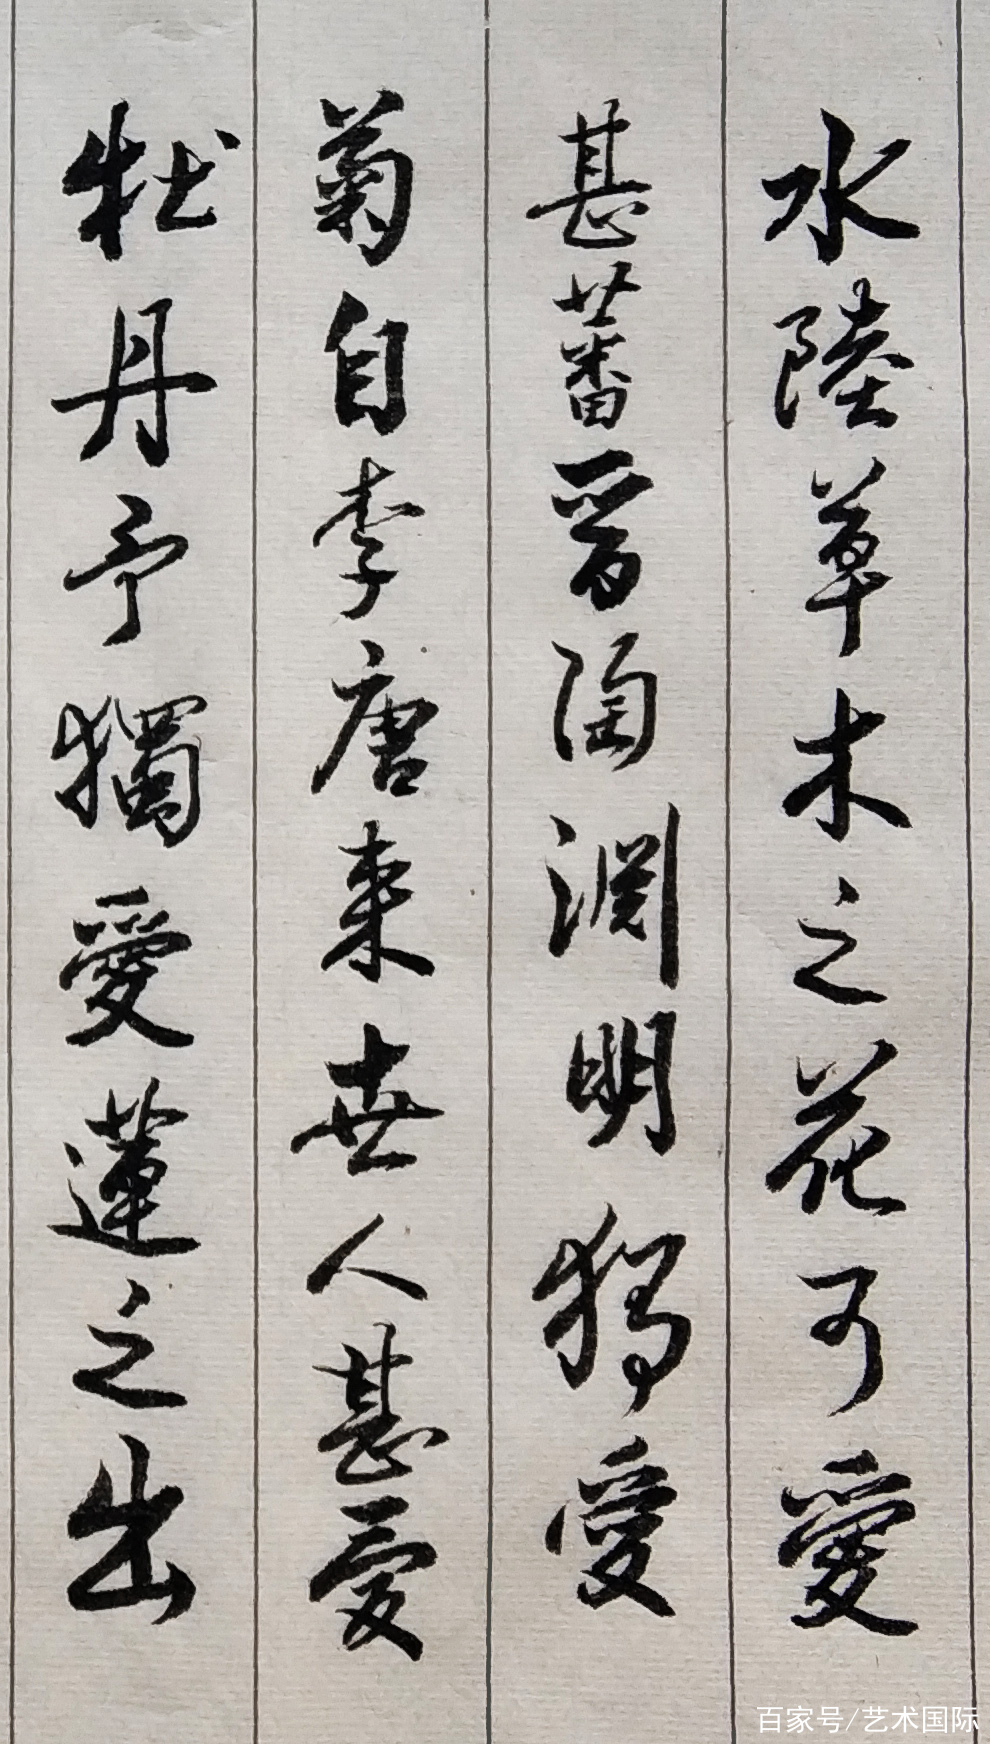 水陸草木之花可愛
甚蕃晉陶淵明獨愛
菊自李唐來世人甚愛
牡丹予獨愛蓮之出
百家号/艺术国际